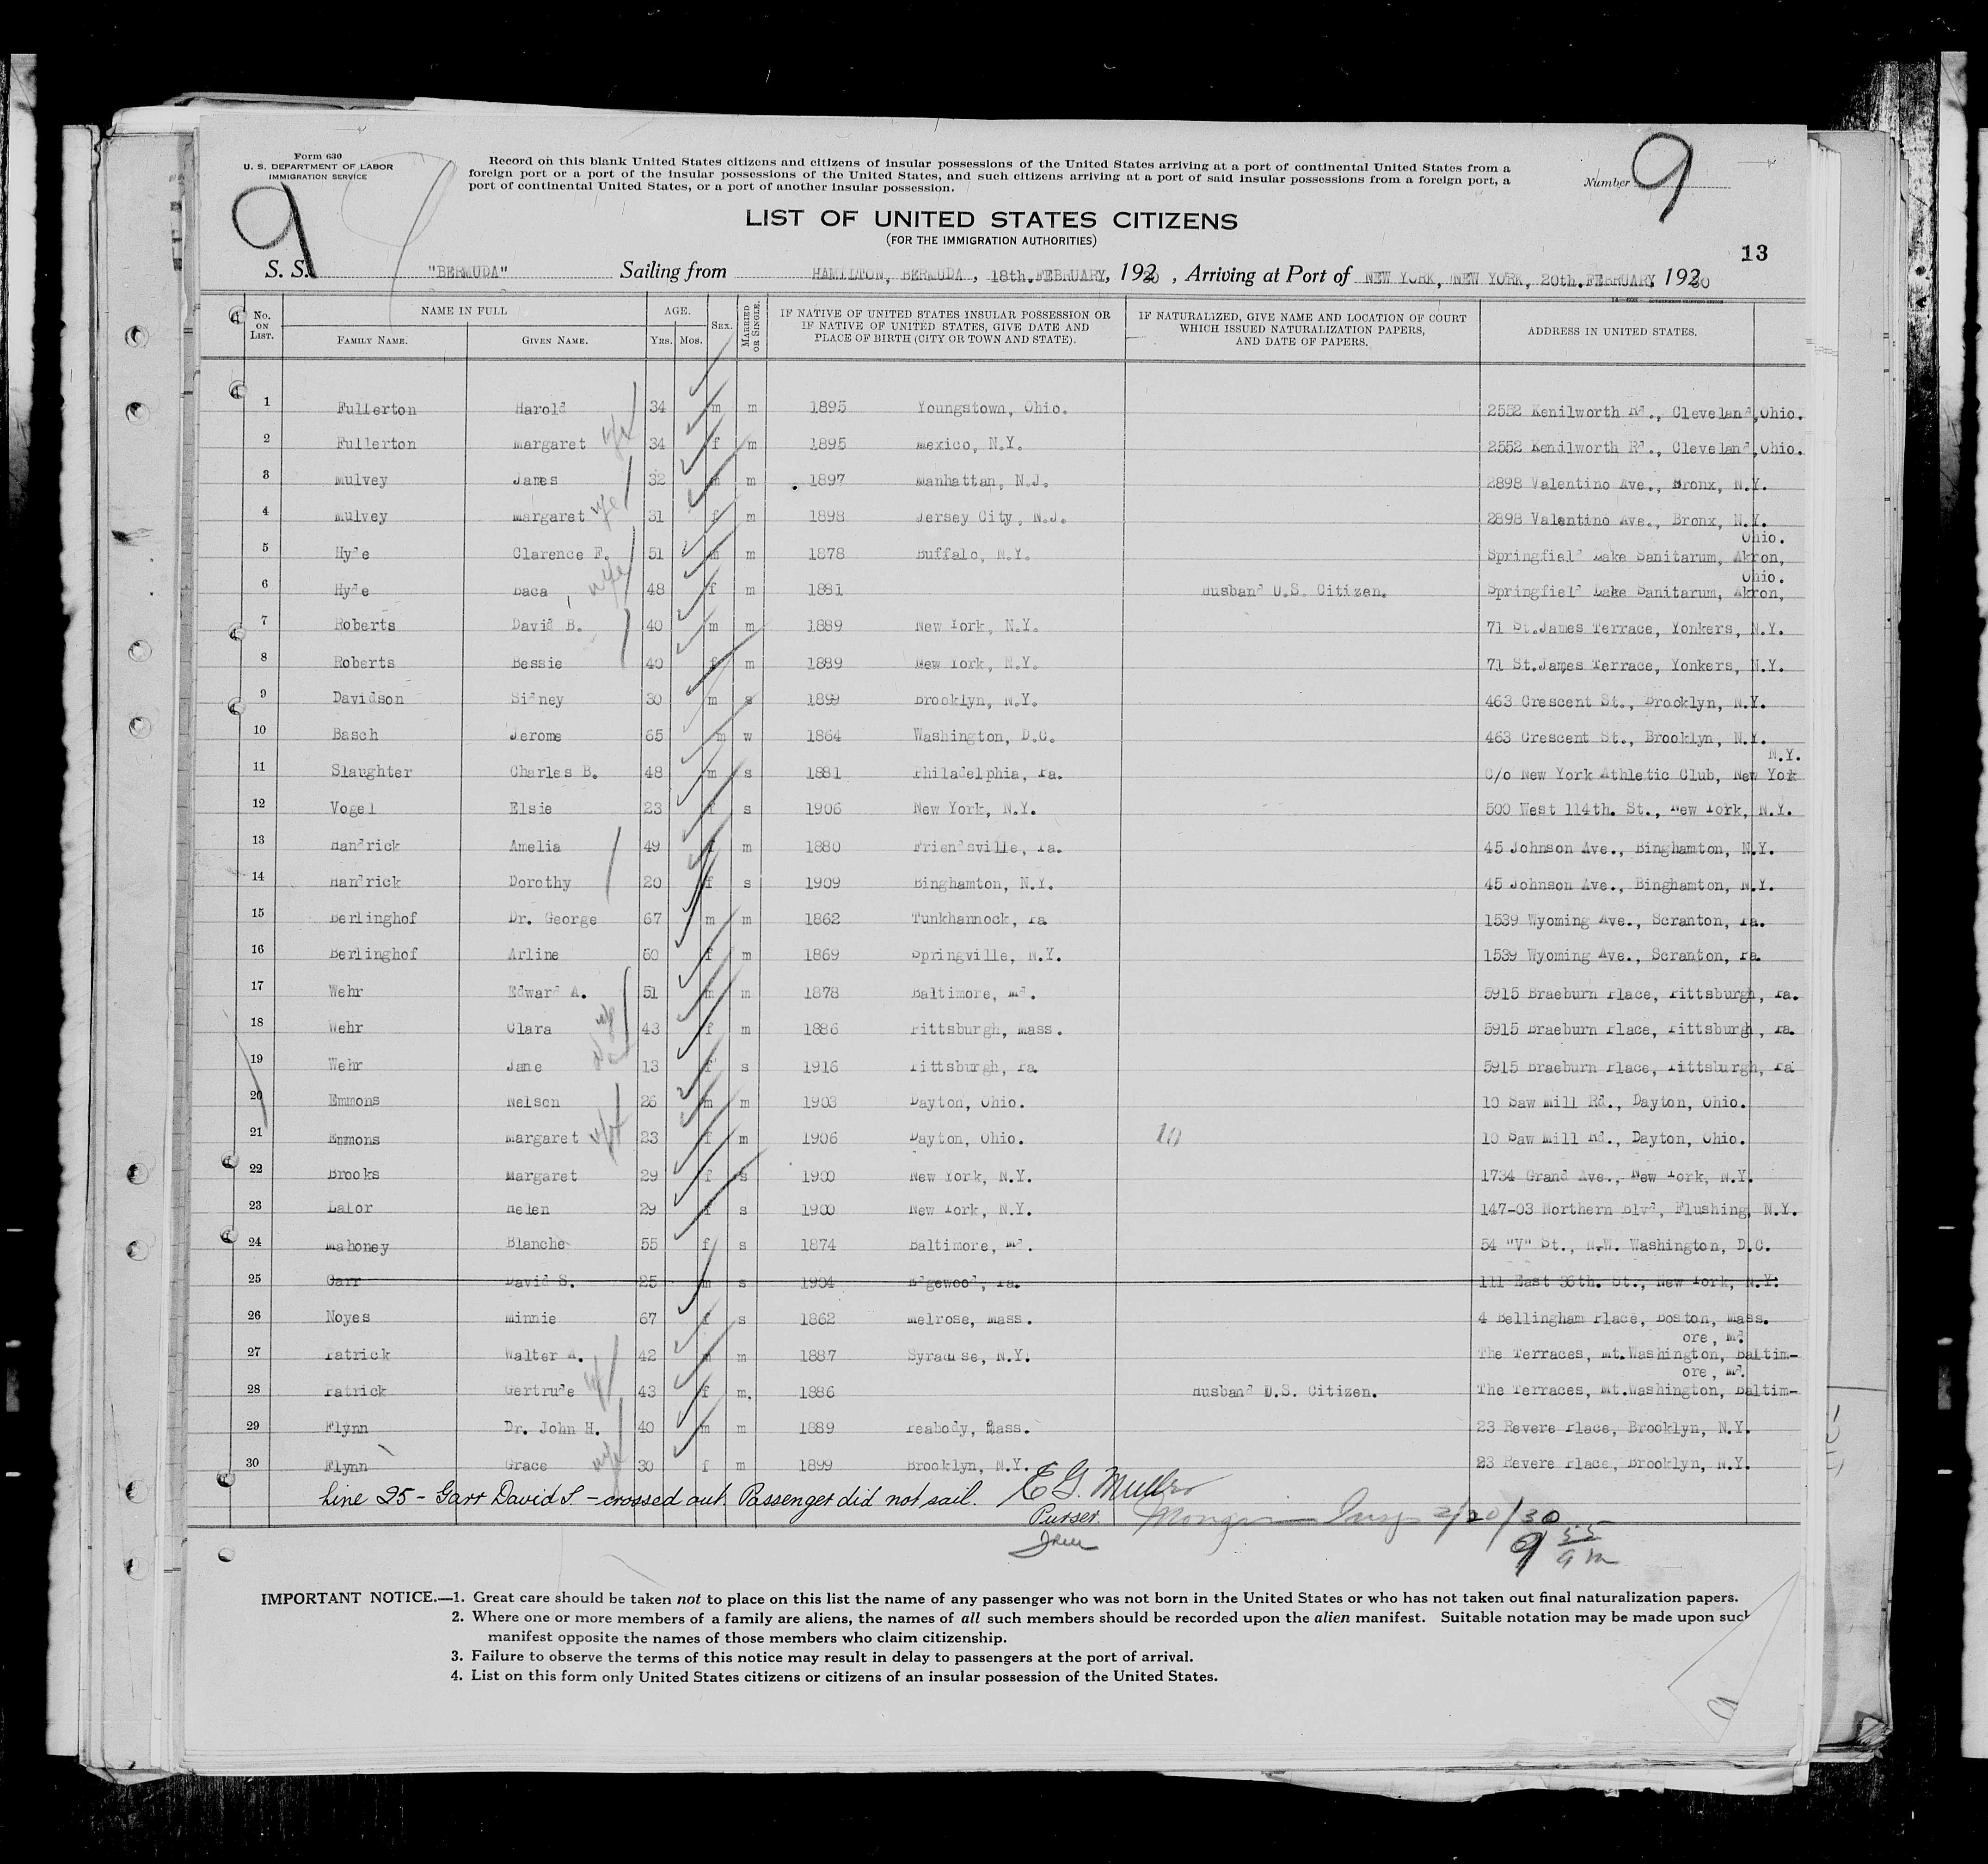 Form 630
U. S. DEPARTMENT OF LABOR
IMMIGRATION SERVICE
9
Record on this blank United States citizens and citizens of insular possessions of the United States arriving at a port of continental United States from a
foreign port or a port of the insular possessions of the United States, and such citizens arriving at a port of said insular possessions from a foreign port, a
port of continental United States, or a port of another insular possession.
Number 9
LIST OF UNITED STATES CITIZENS
(FOR THE IMMIGRATION AUTHORITIES)
13
S. S. "BERMUDA" Sailing from HAMILTON, BERMUDA, 18th. FEBRUARY, 1930, Arriving at Port of NEW YORK, NEW YORK, 20th. FEBRUARY 1930
No. ON LIST. NAME IN FULL FAMILY NAME. GIVEN NAME. AGE. YRS. MOS. SEX. MARRIED OR SINGLE. IF NATIVE OF UNITED STATES INSULAR POSSESSION OR IF NATIVE OF UNITED STATES, GIVE DATE AND PLACE OF BIRTH (CITY OR TOWN AND STATE). IF NATURALIZED, GIVE NAME AND LOCATION OF COURT WHICH ISSUED NATURALIZATION PAPERS, AND DATE OF PAPERS. ADDRESS IN UNITED STATES.
1 Fullerton Harold 34 m m 1895 Youngstown, Ohio. 2552 Kenilworth Rd., Cleveland, Ohio.
2 Fullerton Margaret wife 34 f m 1895 Mexico, N.Y. 2552 Kenilworth Rd., Cleveland, Ohio.
3 Mulvey James 32 m m 1897 Manhattan, N.J. 2898 Valentino Ave., Bronx, N.Y.
4 Mulvey Margaret wife 31 f m 1898 Jersey City, N.J. 2898 Valentino Ave., Bronx, N.Y.
5 Hyde Clarence F. 51 m m 1878 Buffalo, N.Y. Springfield Lake Sanitarum, Akron, Ohio.
6 Hyde Daca wife 48 f m 1881 Husband U.S. Citizen. Springfield Lake Sanitarum, Akron, Ohio.
7 Roberts David B. 40 m m 1889 New York, N.Y. 71 St.James Terrace, Yonkers, N.Y.
8 Roberts Bessie 40 f m 1889 New York, N.Y. 71 St.James Terrace, Yonkers, N.Y.
9 Davidson Sidney 30 m s 1899 Brooklyn, N.Y. 463 Crescent St., Brooklyn, N.Y.
10 Basch Jerome 65 m w 1864 Washington, D.C. 463 Crescent St., Brooklyn, N.Y.
11 Slaughter Charles B. 48 m s 1881 Philadelphia, Pa. C/o New York Athletic Club, New York N.Y.
12 Vogel Elsie 23 f s 1906 New York, N.Y. 500 West 114th. St., New York, N.Y.
13 Handrick Amelia 49 f m 1880 Friendsville, Pa. 45 Johnson Ave., Binghamton, N.Y.
14 Handrick Dorothy 20 f s 1909 Binghamton, N.Y. 45 Johnson Ave., Binghamton, N.Y.
15 Berlinghof Dr. George 67 m m 1862 Tunkhannock, Pa 1539 Wyoming Ave., Scranton, Pa.
16 Berlinghof Arline 60 f m 1869 Springville, N.Y. 1539 Wyoming Ave., Scranton, Pa
17 Wehr Edward A. 51 m m 1878 Baltimore, Md. 5915 Braeburn Place, Pittsburgh, Pa.
18 Wehr Clara wife 43 f m 1886 Pittsburgh, Mass. 5915 Braeburn Place, Pittsburgh, Pa.
19 Wehr Jane 13 f s 1916 Pittsburgh, Pa. 5915 Braeburn Place, Pittsburgh, Pa
20 Emmons Nelson 26 m m 1903 Dayton, Ohio. 10 Saw Mill Rd., Dayton, Ohio.
21 Emmons Margaret wife 23 f m 1906 Dayton, Ohio. 10 10 Saw Mill Rd., Dayton, Ohio.
22 Brooks Margaret 29 f s 1900 New York, N.Y. 1734 Grand Ave., New York, N.Y.
23 Lalor Helen 29 f s 1900 New York, N.Y. 147-03 Northern Blvd, Flushing, N.Y.
24 Mahoney Blanche 55 f s 1874 Baltimore, Md. 54 "V" St., N.W. Washington, D.C.
25 Garr David S. 25 m s 1904 Edgewood, Pa. 111 East 56th. St., New York, N.Y.
26 Noyes Minnie 67 f s 1862 Melrose, Mass. 4 Bellingham Place, Boston, Mass.
27 Patrick Walter A. 42 m m 1887 Syracuse, N.Y. The Terraces, Mt.Washington, Baltimore, Md.
28 Patrick Gertrude 43 f m. 1886 Husband U.S. Citizen. The Terraces, Mt.Washington, Baltimore, Md.
29 Flynn Dr. John H. 40 m m 1889 Peabody, Mass. 23 Revere Place, Brooklyn, N.Y.
30 Flynn Grace wife 30 f m 1899 Brooklyn, N.Y. 23 Revere Place, Brooklyn, N.Y.
Line 25 - Garr David S. - crossed out. Passenger did not sail. E G. Muller
Purser.
2/20/30
9 55
a m
IMPORTANT NOTICE.—1. Great care should be taken not to place on this list the name of any passenger who was not born in the United States or who has not taken out final naturalization papers.
2. Where one or more members of a family are aliens, the names of all such members should be recorded upon the alien manifest. Suitable notation may be made upon such
manifest opposite the names of those members who claim citizenship.
3. Failure to observe the terms of this notice may result in delay to passengers at the port of arrival.
4. List on this form only United States citizens or citizens of an insular possession of the United States.